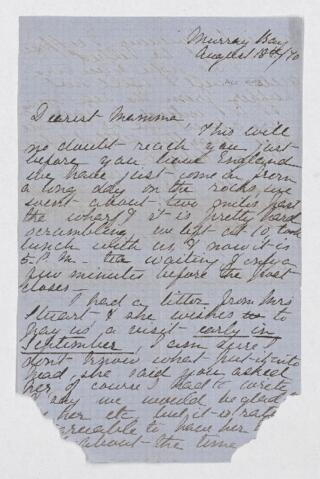 Murray Bay
August 18th/70
Dearest Mamma,
This will
no doubt reach you just
before you leave England
we have just come in from
a long day on the rocks, we
went about two miles past
the wharf & it is pretty hard
scrambling we left at 10, took
lunch with us & now it is
5 P.M. tea waiting & only a
few minutes before the post
closes—
I had a letter from Mrs
Stuart & she wishes to
pay us a visit early in
September, I am sure I
don't know what put it into
head, she said you asked
her of course I had to write
say we would be glad
her etc but it is rather
agreeable to have her
about the time